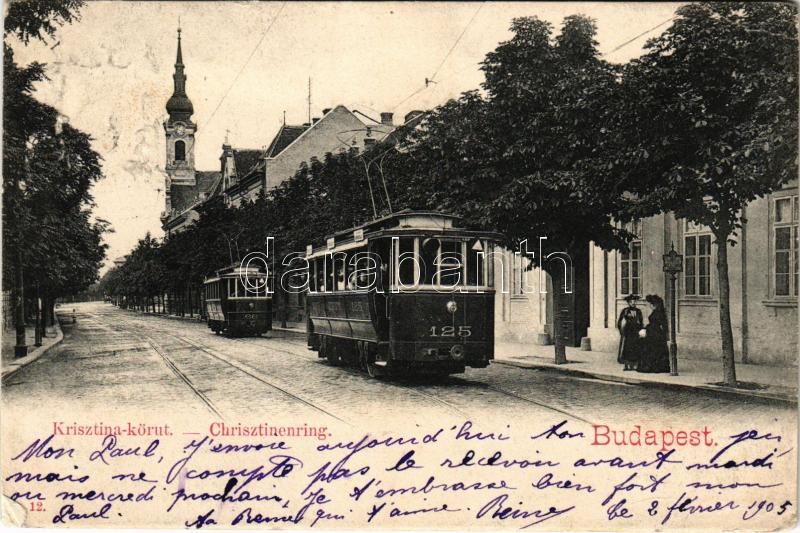 125
darabanth
Krisztina-körut. — Chrisztinenring.
Budapest.
Mon Paul, j'envoie aujourd'hui ton jeu
mais ne compte pas le recevoir avant mardi
ou mercredi prochain, Je t'embrasse bien fort mon
12.
Paul. ta Reine qui t'aime. Reine le 2 février 1905